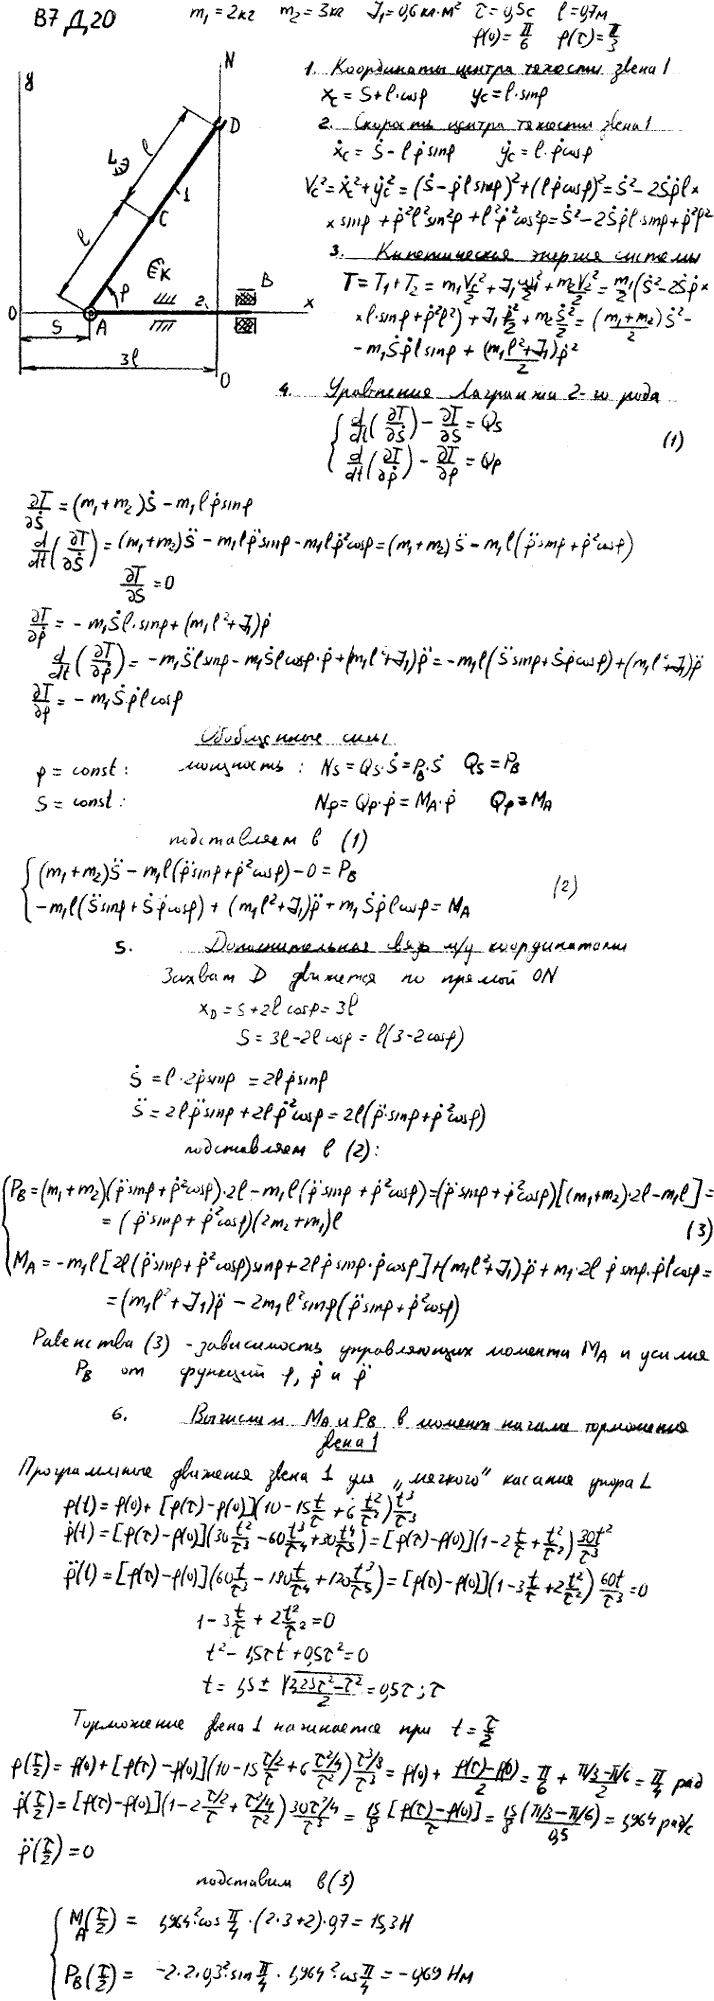 В7 Д20
m₁ = 2кг m₂ = 3кг J₁ = 0,6 кг·м² τ = 0,5с l = 0,7м
φ(0) = π/6 φ(τ) = π/3
y N D L l 1 C l εк φ B 2 0 S A x 3l O
1. Координаты центра тяжести звена 1
x_C = S + l·cosφ y_C = l·sinφ
2. Скорость центра тяжести звена 1
ẋ_C = Ṡ - lφ̇sinφ ẏ_C = l·φ̇cosφ
V_C² = ẋ_C² + ẏ_C² = (Ṡ - φ̇l sinφ)² + (lφ̇cosφ)² = Ṡ² - 2Ṡφ̇l×
× sinφ + φ̇²l²sin²φ + l²φ̇²cos²φ = Ṡ² - 2Ṡφ̇l·sinφ + φ̇²l²
3. Кинетическая энергия системы
T = T₁ + T₂ = m₁V_C²/2 + J₁ω₁²/2 + m₂V₂²/2 = m₁/2(Ṡ² - 2Ṡφ̇×
×l·sinφ + φ̇²l²) + J₁φ̇²/2 + m₂Ṡ²/2 = (m₁+m₂)/2 Ṡ² -
- m₁Ṡφ̇l sinφ + (m₁l²+J₁)/2 φ̇²
4. Уравнение Лагранжа 2-го рода
d/dt(∂T/∂Ṡ) - ∂T/∂S = Q_S
(1)
d/dt(∂T/∂φ̇) - ∂T/∂φ = Q_φ
∂T/∂Ṡ = (m₁+m₂)Ṡ - m₁lφ̇sinφ
d/dt(∂T/∂Ṡ) = (m₁+m₂)S̈ - m₁lφ̈sinφ - m₁lφ̇²cosφ = (m₁+m₂)S̈ - m₁l(φ̈sinφ + φ̇²cosφ)
∂T/∂S = 0
∂T/∂φ̇ = - m₁Ṡl·sinφ + (m₁l²+J₁)φ̇
d/dt(∂T/∂φ̇) = -m₁S̈lsinφ - m₁Ṡlcosφ·φ̇ + (m₁l²+J₁)φ̈ = -m₁l(S̈sinφ + Ṡφ̇cosφ) + (m₁l²+J₁)φ̈
∂T/∂φ = - m₁Ṡφ̇lcosφ
Обобщенные силы
φ = const: мощность: N_S = Q_S·Ṡ = P_B·Ṡ Q_S = P_B
S = const: N_φ = Q_φ·φ̇ = M_A·φ̇ Q_φ = M_A
подставляем в (1)
(m₁+m₂)S̈ - m₁l(φ̈sinφ + φ̇²cosφ) - 0 = P_B
(2)
-m₁l(S̈sinφ + Ṡφ̇cosφ) + (m₁l²+J₁)φ̈ + m₁Ṡφ̇lcosφ = M_A
5. Дополнительная связь м/у координатами
Захват D движется по прямой ON
x_D = S + 2l cosφ = 3l
S = 3l - 2l cosφ = l(3 - 2cosφ)
Ṡ = l·2φ̇sinφ = 2lφ̇sinφ
S̈ = 2lφ̈sinφ + 2lφ̇²cosφ = 2l(φ̈sinφ + φ̇²cosφ)
подставляем в (2):
P_B = (m₁+m₂)(φ̈sinφ + φ̇²cosφ)·2l - m₁l(φ̈sinφ + φ̇²cosφ) = (φ̈sinφ + φ̇²cosφ)[(m₁+m₂)·2l - m₁l] =
= (φ̈sinφ + φ̇²cosφ)(2m₂+m₁)l (3)
M_A = -m₁l[2l(φ̈sinφ + φ̇²cosφ)sinφ + 2lφ̇sinφ·φ̇cosφ] + (m₁l²+J₁)φ̈ + m₁·2lφ̇sinφ·φ̇lcosφ =
= (m₁l²+J₁)φ̈ - 2m₁l²sinφ(φ̈sinφ + φ̇²cosφ)
Равенства (3) - зависимость управляющих момента M_A и усилия
P_B от функций φ, φ̇ и φ̈
6. Вычислим M_A и P_B в момент начала торможения
звена 1
Программные движения звена 1 для „мягкого" касания упора L
φ(t) = φ(0) + [φ(τ) - φ(0)](10 - 15t/τ + 6t²/τ²)t³/τ³
φ̇(t) = [φ(τ) - φ(0)](30t²/τ³ - 60t³/τ⁴ + 30t⁴/τ⁵) = [φ(τ) - φ(0)](1 - 2t/τ + t²/τ²)30t²/τ³
φ̈(t) = [φ(τ) - φ(0)](60t/τ³ - 180t²/τ⁴ + 120t³/τ⁵) = [φ(τ) - φ(0)](1 - 3t/τ + 2t²/τ²)60t/τ³ = 0
1 - 3t/τ + 2t²/τ² = 0
t² - 1,5τt + 0,5τ² = 0
t = 1,5 ± √(2,25τ² - τ²)/2 = 0,5τ; τ
Торможение звена 1 начинается при t = τ/2
φ(τ/2) = φ(0) + [φ(τ) - φ(0)](10 - 15 τ/2/τ + 6 τ²/4/τ²) τ³/8/τ³ = φ(0) + (φ(τ) - φ(0))/2 = π/6 + (π/3 - π/6)/2 = π/4 рад
φ̇(τ/2) = [φ(τ) - φ(0)](1 - 2 τ/2/τ + τ²/4/τ²) 30τ²/4/τ³ = 15/8 [φ(τ) - φ(0)]/τ = 15/8 (π/3 - π/6)/0,5 = 1,964 рад/с
φ̈(τ/2) = 0
подставим в (3)
M_A(τ/2) = 1,964²·cos π/4 ·(2·3+2)·0,7 = 15,3 Н
P_B(τ/2) = -2·2·0,3²·sin π/4 · 1,964²·cos π/4 = -0,69 Нм